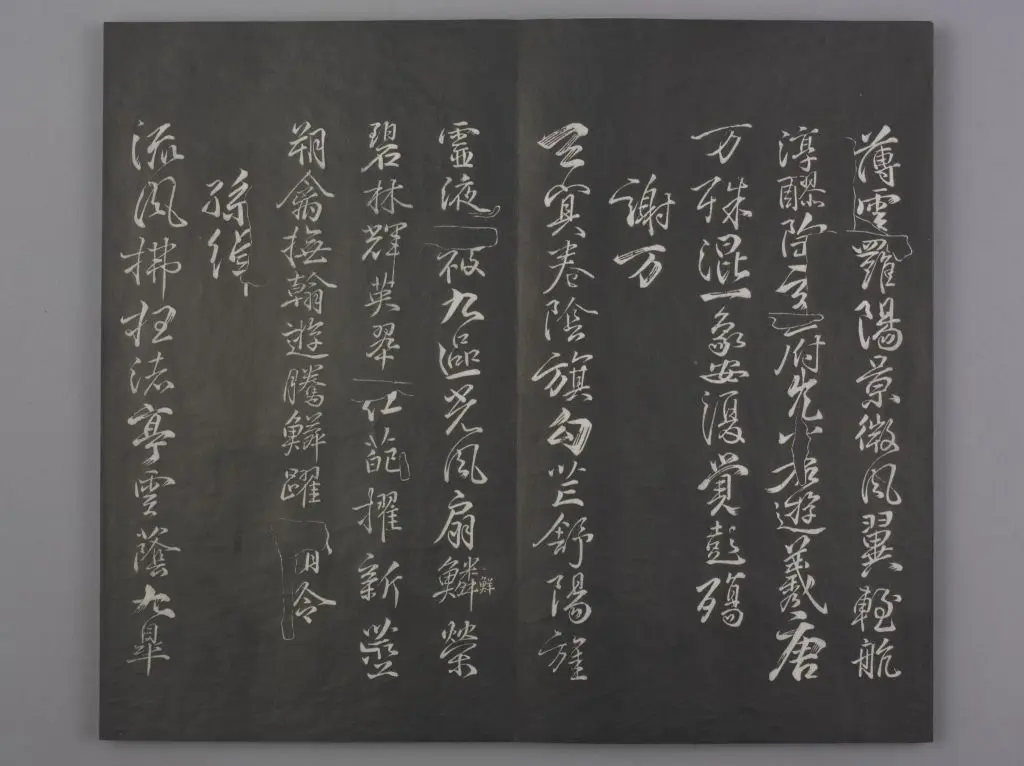 薄雲羅陽景微風翼輕航
淳醪陶玄府兀若遊羲唐
万殊混一象安復覺彭殤
謝万
玄冥卷陰旗勾芒舒陽旌
靈液被九區光風扇鱗鮮榮
碧林輝英翠红葩擢新莖
翔禽撫翰遊騰鱗躍清泠
孫綽
流風拂枉渚亭雲蔭九皐